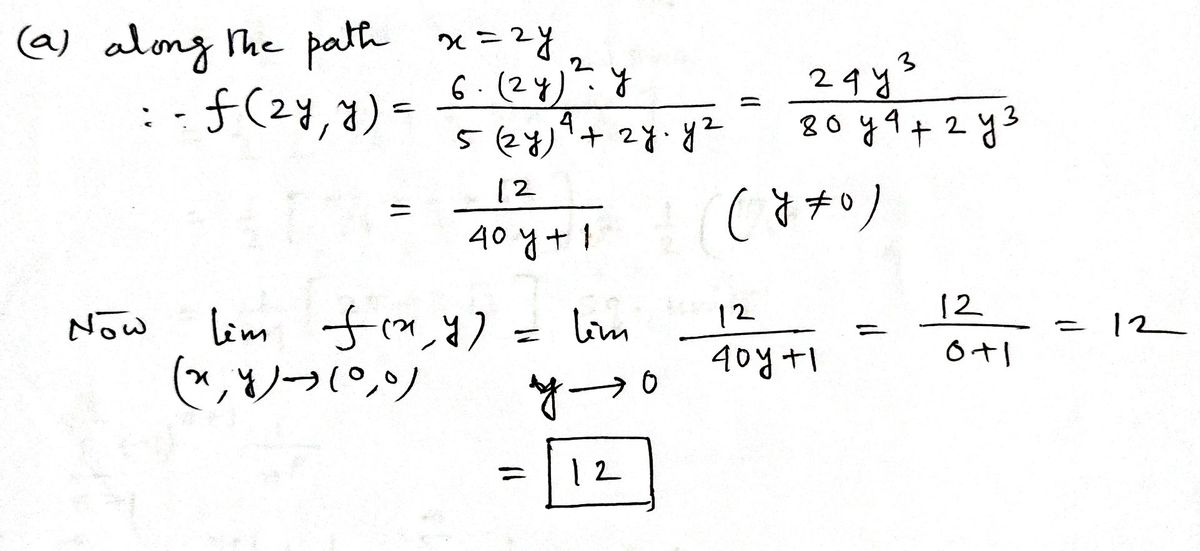 (a) along the path x = 2y
∴ f(2y, y) = \frac{6 \cdot (2y)^2 \cdot y}{5 (2y)^4 + 2y \cdot y^2} = \frac{24 y^3}{80 y^4 + 2 y^3}
= \frac{12}{40 y + 1} (y ≠ 0)
Now \lim_{(x, y) → (0, 0)} f(x, y) = \lim_{y → 0} \frac{12}{40y + 1} = \frac{12}{0 + 1} = 12
= 12